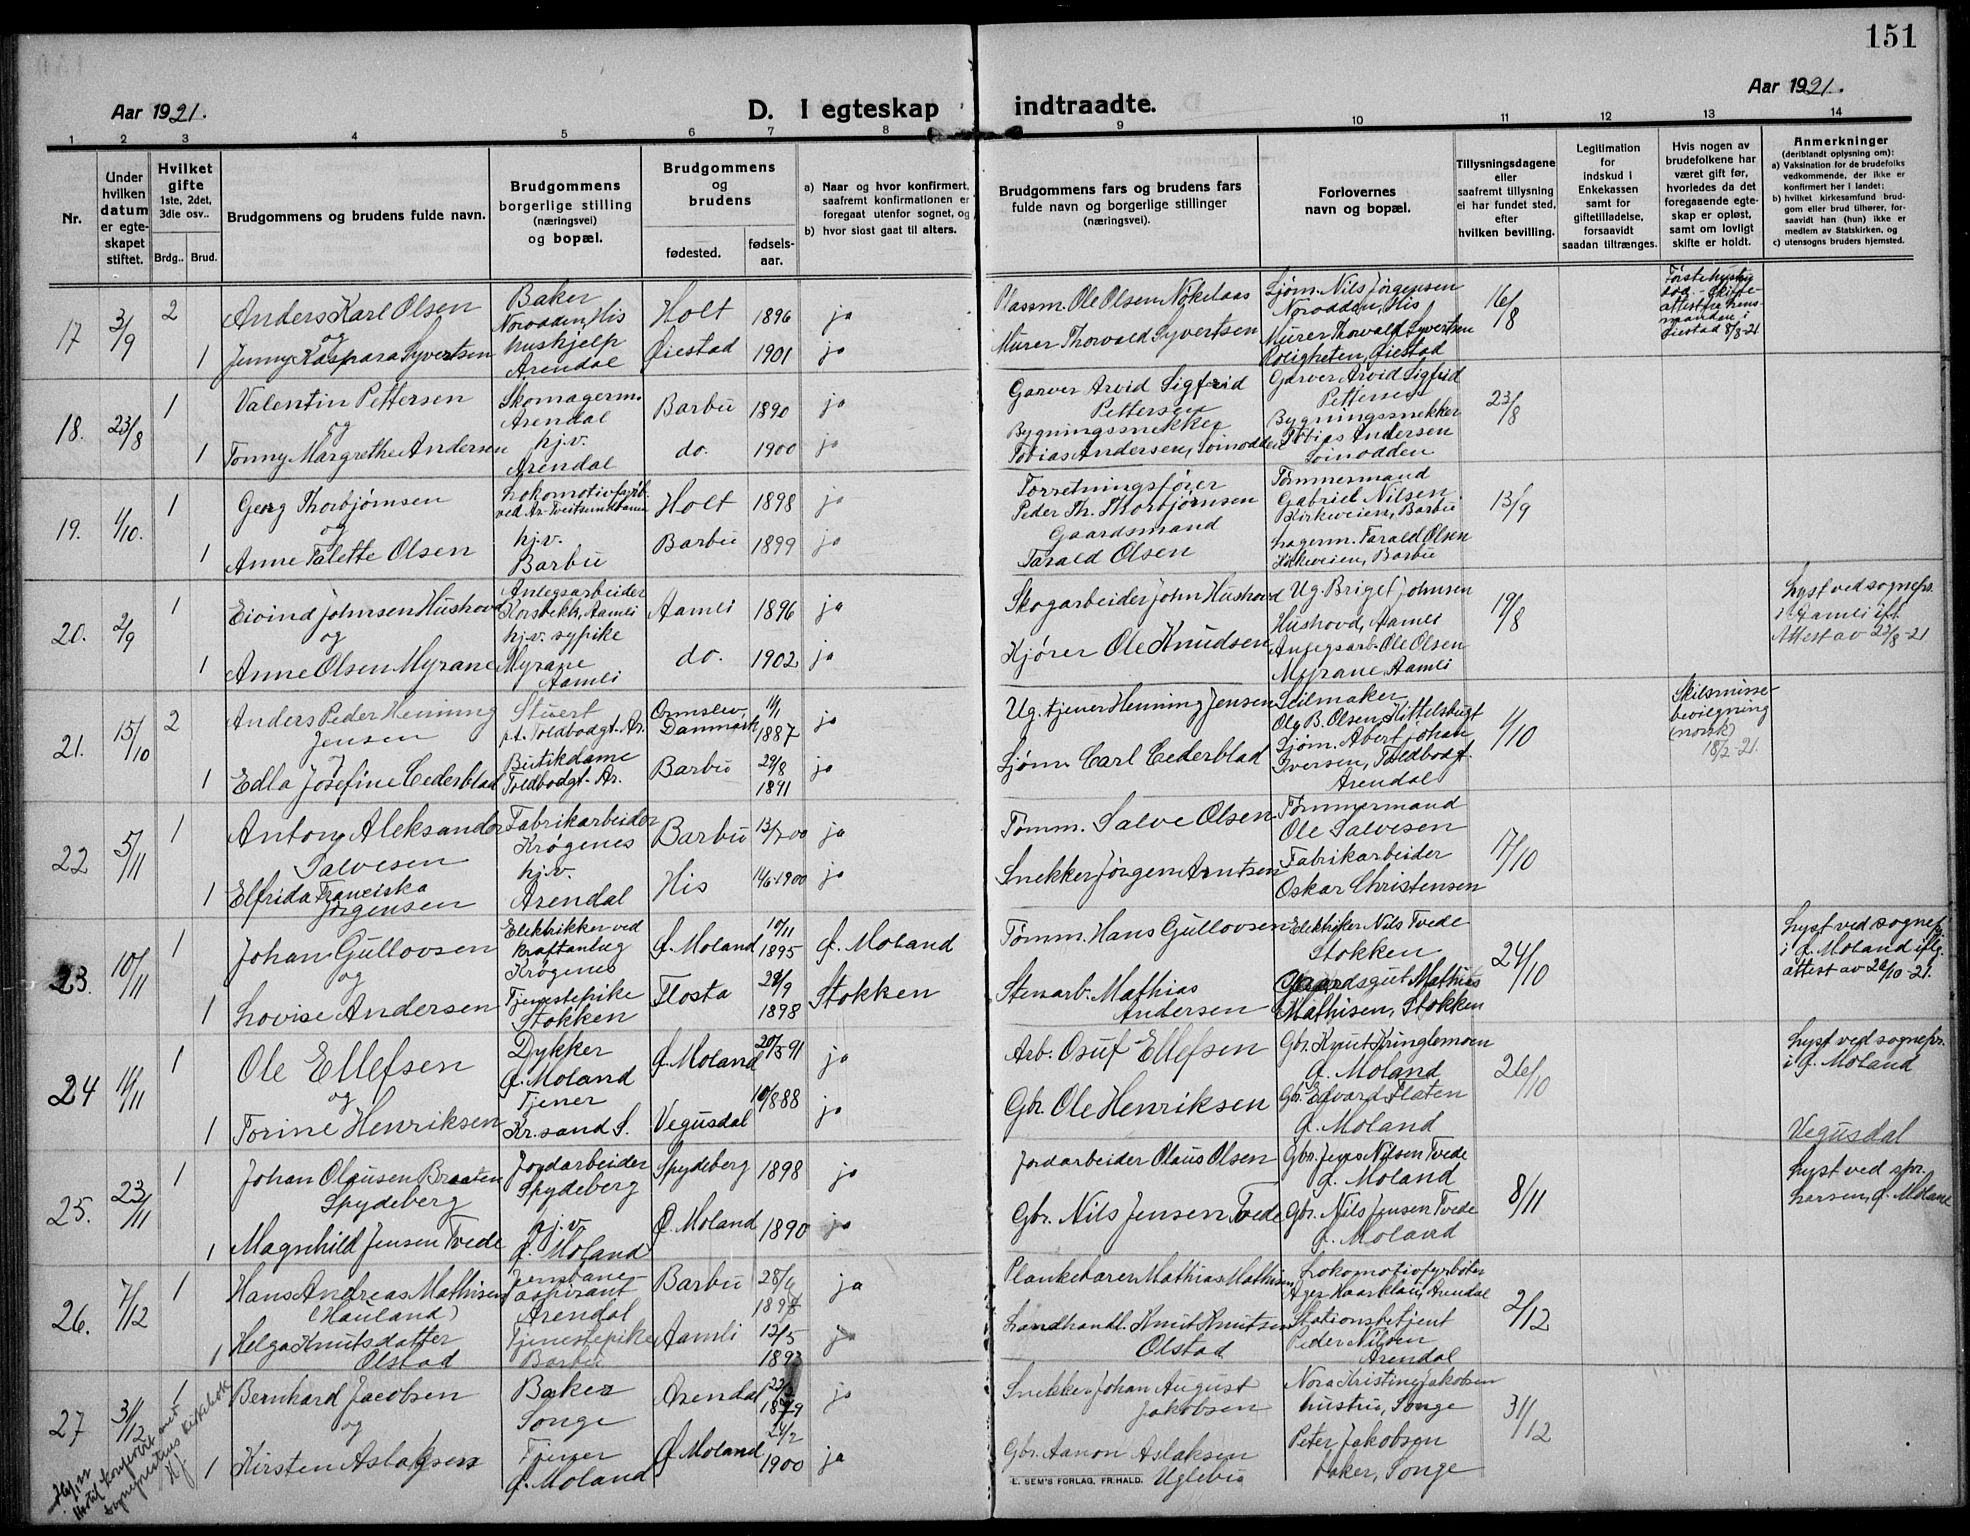 151
Aar 1921.
D. I egteskap indtraadte.
Aar 1921.
1 2 3 4 5 6 7 8 9 10 11 12 13 14
Nr.
Under hvilken datum er egteskapet stiftet.
Hvilket gifte 1ste, 2det, 3die osv..
Brdg.. Brud.
Brudgommens og brudens fulde navn.
Brudgommens borgerlige stilling (næringsvei) og bopæl.
Brudgommens og brudens
fødested. fødselsaar.
a) Naar og hvor konfirmert, saafremt konfirmationen er foregaat utenfor sognet, og
b) hvor sidst gaat til alters.
Brudgommens fars og brudens fars fulde navn og borgerlige stillinger (næringsvei).
Forlovernes navn og bopæl.
Tillysningsdagene eller saafremt tillysning ei har fundet sted, efter hvilken bevilling.
Legitimation for indskud i Enkekassen samt for giftetilladelse, forsaavidt saadan tiltrænges.
Hvis nogen av brudefolkene har været gift før, hvorledes da det foregaaende egteskap er opløst, samt om lovligt skifte er holdt.
Anmerkninger
(deriblandt oplysning om):
a) Vaksination for de brudefolks vedkommende, der ikke er konfirmert her i landet;
b) hvilket kirkesamfund brudgom eller brud tilhører, forsaavidt han (hun) ikke er medlem av Statskirken, og
c) utensogns bruders hjemsted.
17 3/9 2 Anders Karl Olsen Baker Norodden, His Holt 1896 ja Plassm. Ole Olsen Nøkelaas Sjøm. Nils Jørgensen Norodden, His 16/8
og
1 Jenny Kaspara Syvertsen hushjelp Arendal Øiestad 1901 ja Murer Thorvald Syvertsen Murer Thorvald Syvertsen Roligheten, Øiestad
Første hustru død - skifteattest fra lensmanden i Øiestad 8/8-21
18. 23/8 1 Valentin Pettersen Skomagerm. Arendal Barbu 1890 ja Garver Arvid Sigfrid Pettersen Garver Arvid Sigfrid Pettersen 23/8
og
1 Tonny Margrethe Andersen hj.v. Arendal do. 1900 ja Bygningssnekker Tobias Andersen, Soinodden Bygningssnekker Tobias Andersen Soinodden
19. 1/10. 1 Georg Thorbjørnsen Lokomotivfyrb. ved Ar. Tveitsundbanen Holt 1898 ja Forretningsfører Peder Th. Thorbjørnsen Tømmermand Gabriel Nilsen Kirkeveien, Barbu 13/9
og
1 Anne Talette Olsen hj.v. Barbu Barbu 1899 ja Gaardsmand Tarald Olsen Lagerm. Tarald Olsen Kirkeveien, Barbu
20. 2/9 1 Eivind Johnsen Hushovd Anlegsarbeider Korsbekk, Aamli Aamli 1896 ja Skogarbeider John Hushovd Ug. Briget Johnsen Hushovd, Aamli 19/8
og
1 Anne Olsen Myrane hj.v. sypike Myrane Aamli do. 1902 ja Kjører Ole Knudsen Anlegsarb. Ole Olsen Myrane Aamli
Lyst ved sognepr. i Aamli ifl. Attest av 23/8-21
21. 15/10 2 Anders Peder Henning Jensen Stuert p.t. Toldbodgt. Ar. Ormslev, Danmark 11/1 1887 ja Ug. tjener Henning Jensen Seilmaker Olg B. Olsen, Kittelsbugt 1/10
1 Edla Josefine Cederblad Butikdame Toldbodgt. Ar. Barbu 29/8 1891 ja Sjøm. Carl Cederblad Sjøm. Abert Johan Iversen, Toldbodgt. Arendal
Skilsmissebevilgning (norsk) 18/2-21.
22 5/11 1 Anton Aleksander Salvesen Fabrikarbeider Krøgenes Barbu 13/7 00 ja Tømm. Salve Olsen Tømmermand Ole Salvesen 17/10
1 Elfrida Franciska Jørgensen hj.v. Arendal His 14/6-1900 ja Snekker Jørgen Arntsen Fabrikarbeider Oskar Christensen
23. 10/11 1 Johan Gullovsen Elektrikker ved Kraftanlæg Krøgenes Ø. Moland 10/11 1895 Ø. Moland Tømm. Hans Gullovsen Elektriker Nils Tvede Stokken 24/10
og
1 Lovise Andersen Tjenestepike Stokken Flosta 29/9 1898 Stokken Stenarb. Mathias Andersen Gaardsgut Mathias Mathisen, Stokken
Lyst ved sognepr. i Ø. Moland iflg. attest av 26/10-21.
24 11/11 1 Ole Ellefsen Dykker Ø. Moland Ø. Moland 20/3 91 ja Arb. Osuf Ellefsen Gbr. Knut Kringlemoen Ø. Moland 26/10
og
1 Torine Henriksen Tjener Kr.sand S. Vegusdal 10/8 88 ja Gbr. Ole Henriksen Gbr. Edvard Flaten Ø. Moland
Lyst ved sognepr. i Ø. Moland
Vegusdal
25. 23/11 1 Johan Olausen Braaten Spydeberg Jordarbeider Spydeberg Spydeberg 1898 ja Jordarbeider Olaus Olsen Gbr. Jens Nilsen Tvede Ø. Moland 8/11
1 Magnhild Jensen Tvede hj.v. Ø. Moland Ø. Moland 1890 ja Gbr. Nils Jensen Tvede Gbr. Nils Jensen Tvede Ø. Moland
Lyst ved spr. Larsen, Ø. Moland
26. 7/12 1 Hans Andreas Mathisen (Hauland) Jernbaneaspirant Arendal Barbu 28/4 ja Plankebærer Mathias Mathisen Lokomotivfyrbøter Arendal 2/12
1 Helga Knutsdatter Olstad Tjenestepike Barbu Aamli 13/5 1893 ja Landhandl. Knut Knutsen Olstad Stationsbetjent Peder Nilsen Arendal
27 31/12 1 Bernhard Jacobsen Baker Songe Arendal ja Snekker Johan August Jakobsen Nora Kristine Jakobsen hustru, Songe 31/12
og
1 Kirsten Aslaksen Tjener Ø. Moland Ø. Moland 24/2 1900 ja Gbr. Aanon Aslaksen Uglebu Peter Jakobsen baker, Songe
Hertil konferert med sogneprestens kirkebok
E. SEM'S FORLAG, FR.HALD.